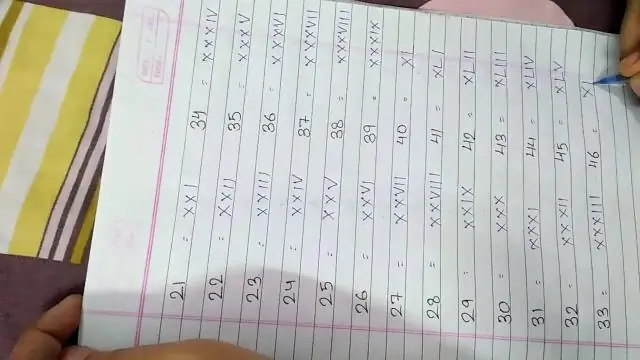 21 = XXI 34 = XXXIV
22 = XXII 35 = XXXV
23 = XXIII 36 = XXXVI
24 = XXIV 37 = XXXVII
25 = XXV 38 = XXXVIII
26 = XXVI 39 = XXXIX
27 = XXVII 40 = XL
28 = XXVIII 41 = XLI
29 = XXIX 42 = XLII
30 = XXX 43 = XLIII
31 = XXXI 44 = XLIV
32 = XXXII 45 = XLV
33 = XXXIII 46 = XL